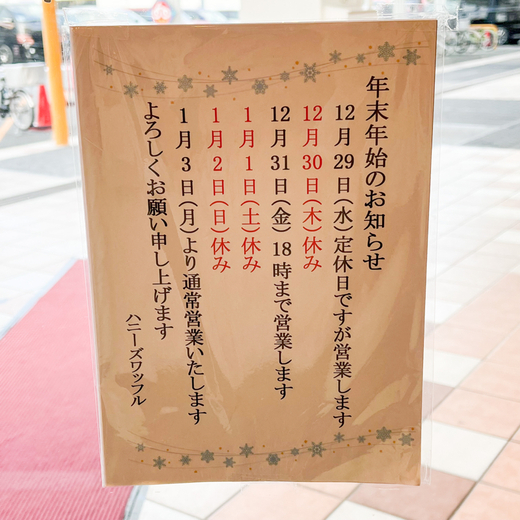 年末年始のお知らせ
12月29日(水)定休日ですが営業します
12月30日(木)休み
12月31日(金)18時まで営業します
1月1日(土)休み
1月2日(日)休み
1月3日(月)より通常営業いたします
よろしくお願い申し上げます
ハニーズワッフル